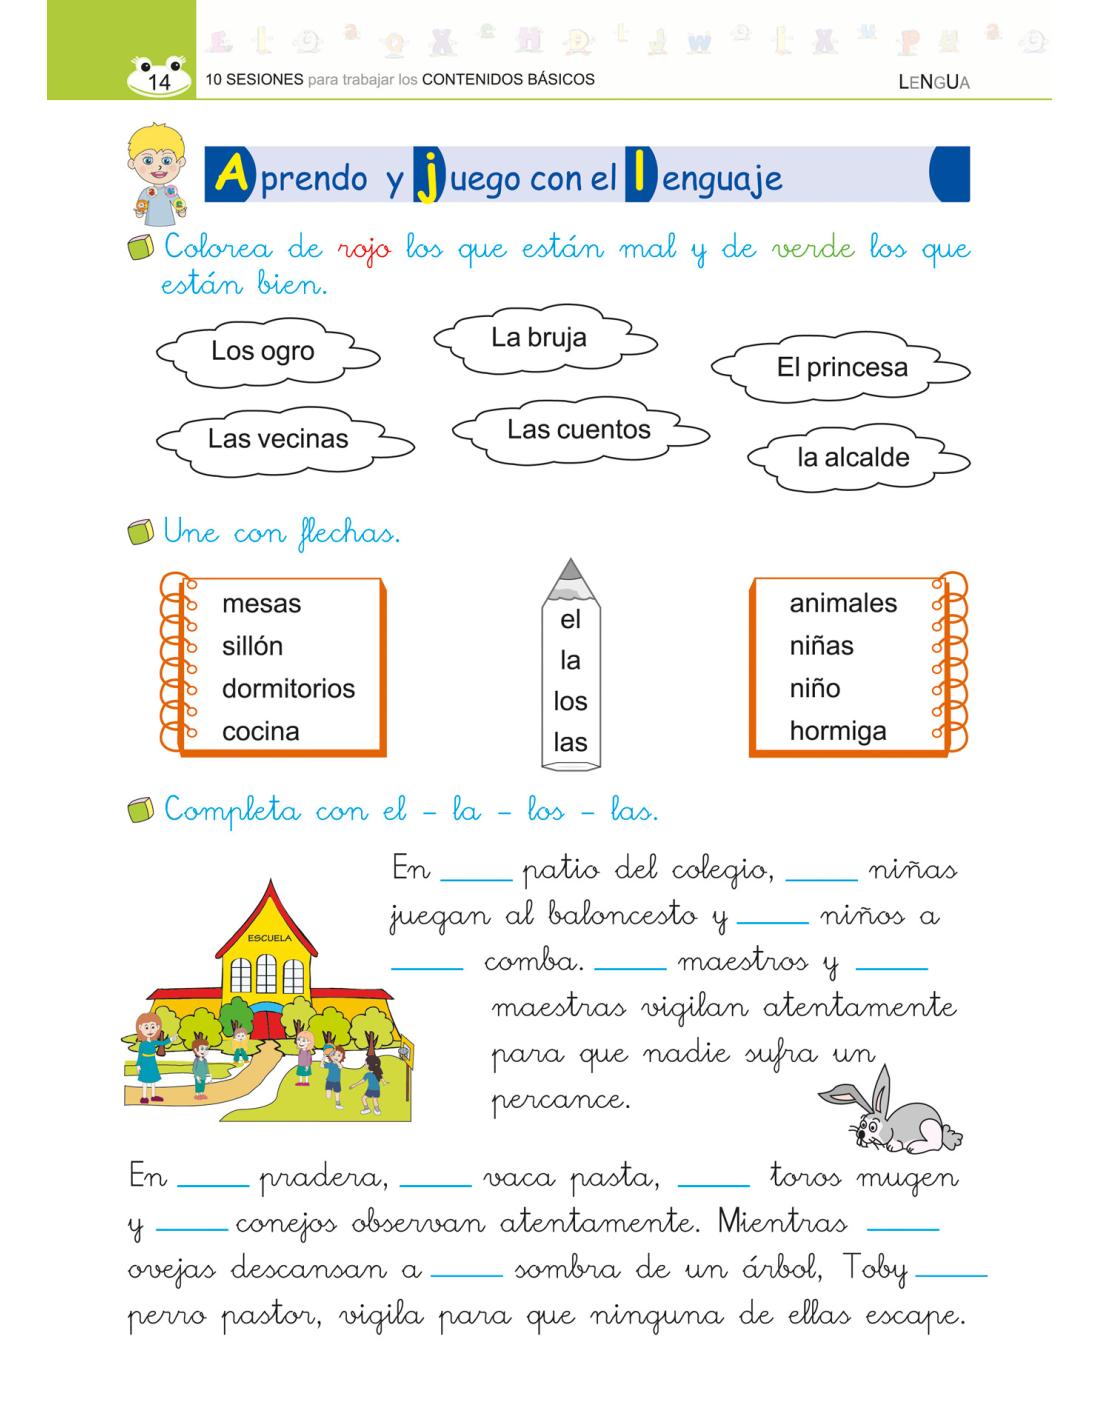 14 10 SESIONES para trabajar los CONTENIDOS BÁSICOS LENgUA
Aprendo y juego con el lenguaje
Colorea de rojo los que están mal y de verde los que
están bien.
Los ogro
La bruja
El princesa
Las vecinas
Las cuentos
la alcalde
Une con flechas.
mesas
sillón
dormitorios
cocina
el
la
los
las
animales
niñas
niño
hormiga
Completa con el - la - los - las.
ESCUELA
En _____ patio del colegio, _____ niñas
juegan al baloncesto y _____ niños a
_____ comba. _____ maestros y _____
maestras vigilan atentamente
para que nadie sufra un
percance.
En _____ pradera, _____ vaca pasta, _____ toros mugen
y _____ conejos observan atentamente. Mientras _____
ovejas descansan a _____ sombra de un árbol, Toby _____
perro pastor, vigila para que ninguna de ellas escape.